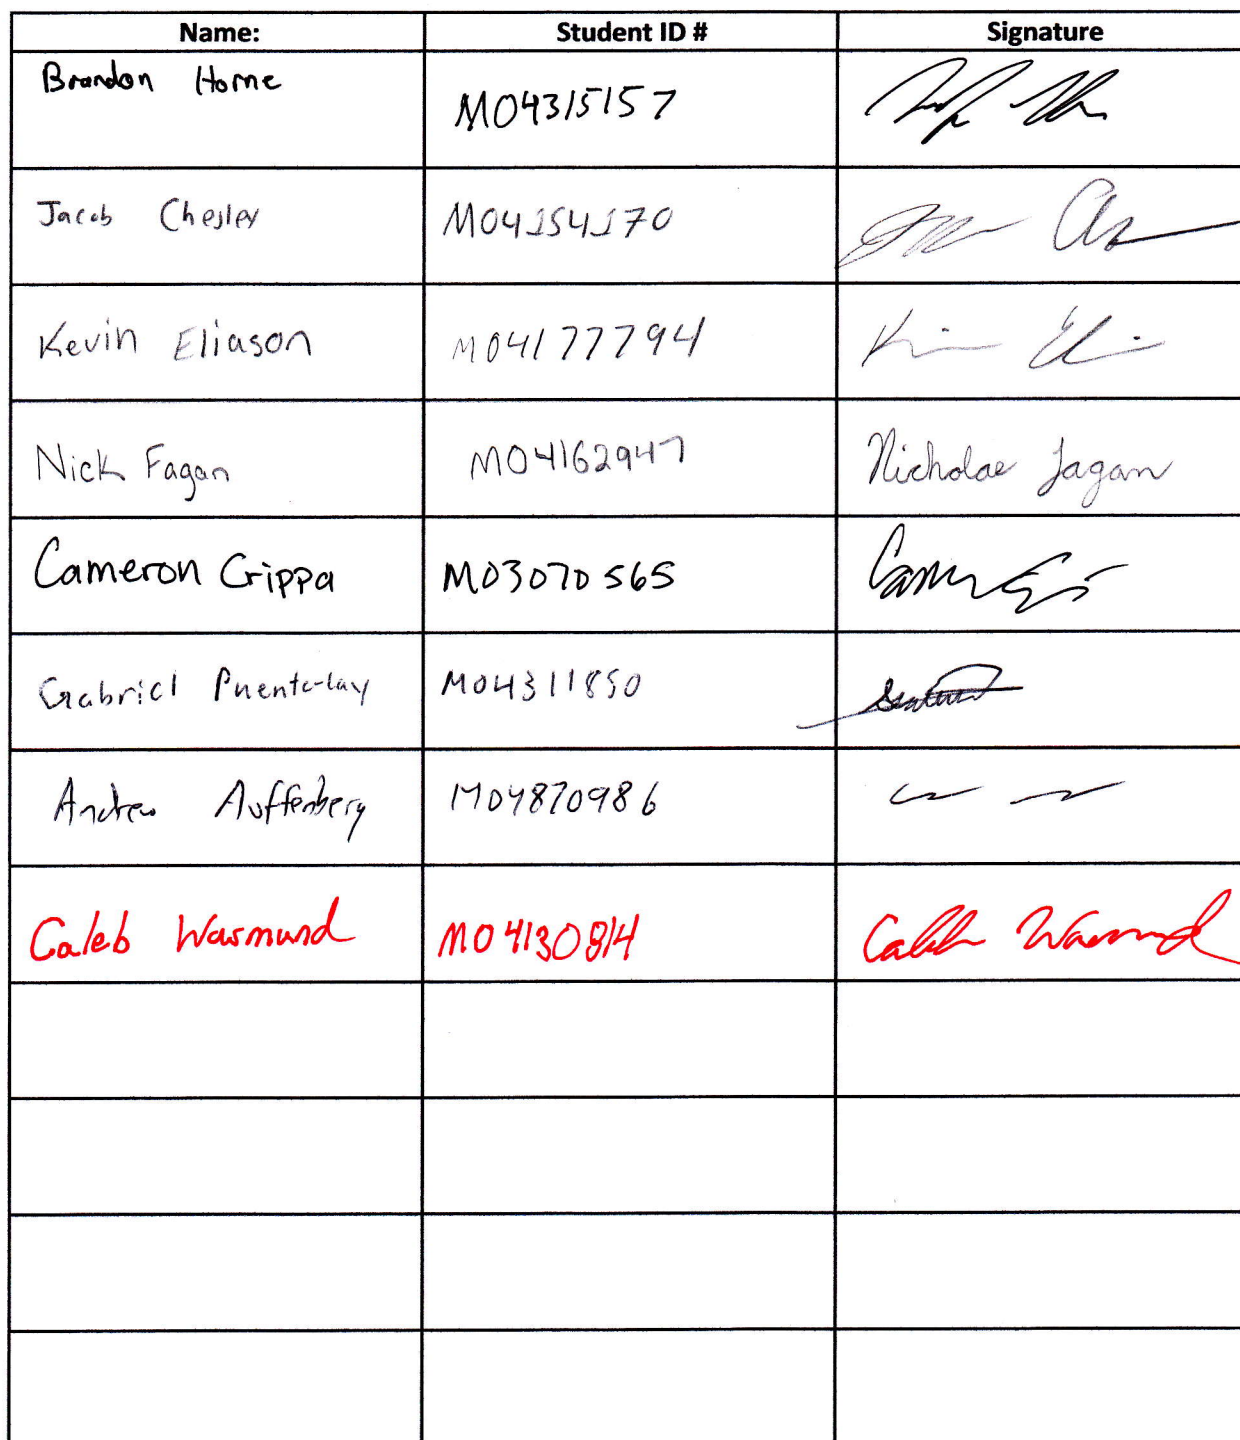 Name: Student ID # Signature
Brandon Horne M04315157
Jacob Chesley M04154170
Kevin Eliason M04177794
Nick Fagan M04162947 Nicholas Fagan
Cameron Crippa M03070565
Gabriel Puente-lay M04311850
Andrew Auffenberg M04870986
Caleb Wasmund M04130814 Caleb Wasmund